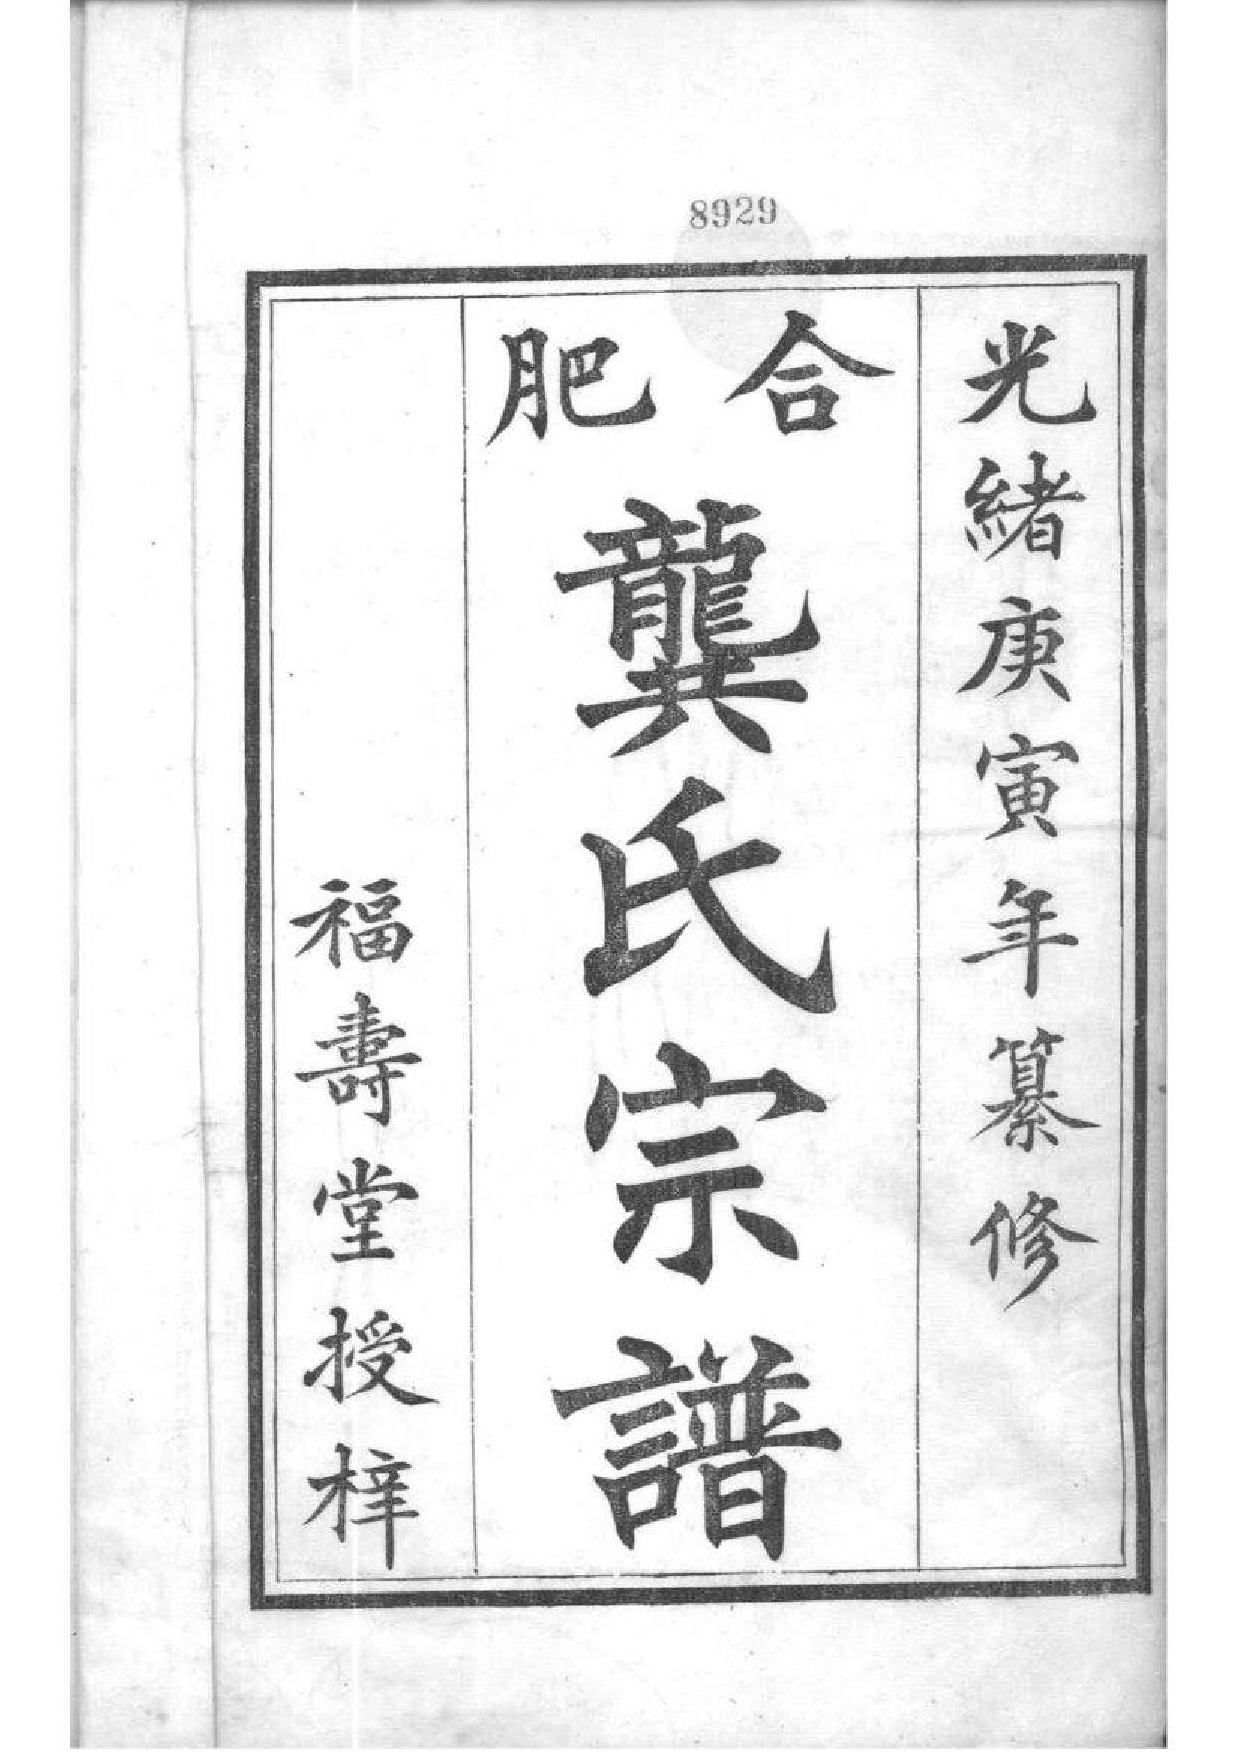 8929
光緒庚寅年纂修
合肥
龔氏宗譜
福壽堂授梓